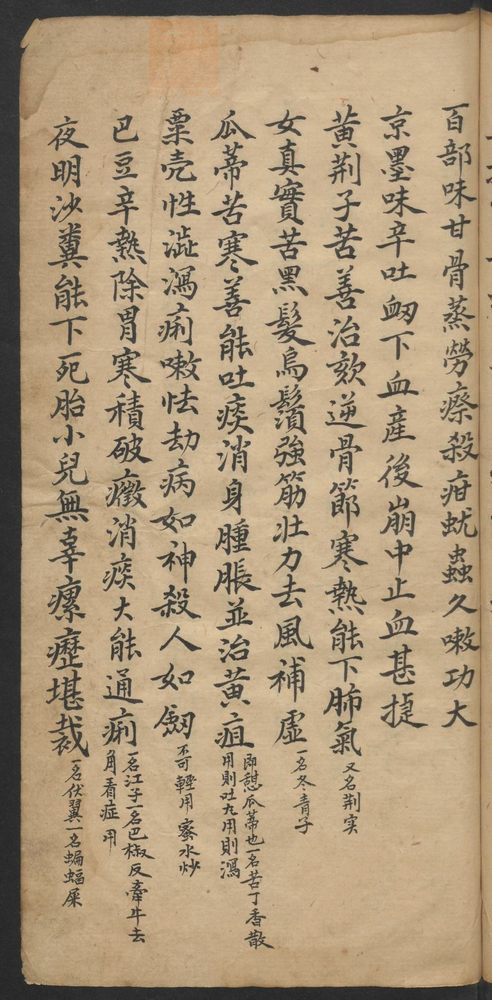 百部味甘骨蒸勞瘵殺疳蚘蟲久嗽功大
京墨味辛吐衂下血産後崩中止血甚捷
黄荆子苦善治欬逆骨節寒熱能下肺氣 又名荆实
女真實苦黑髮烏鬚強筋壯力去風補虛 一名冬青子
瓜蒂苦寒善能吐痰消身腫脹並治黄疸 即甜瓜蒂也一名苦丁香散用則吐丸用則瀉
粟壳性澁瀉痢嗽怯劫病如神殺人如劒 不可輕用 蜜水炒
巴豆辛熱除胃寒積破癥消痰大能通痢 一名江子一名巴椒反牽牛去角看症用
夜明沙糞能下死胎小兒無辜瘰癧堪裁 一名伏翼一名蝙蝠屎